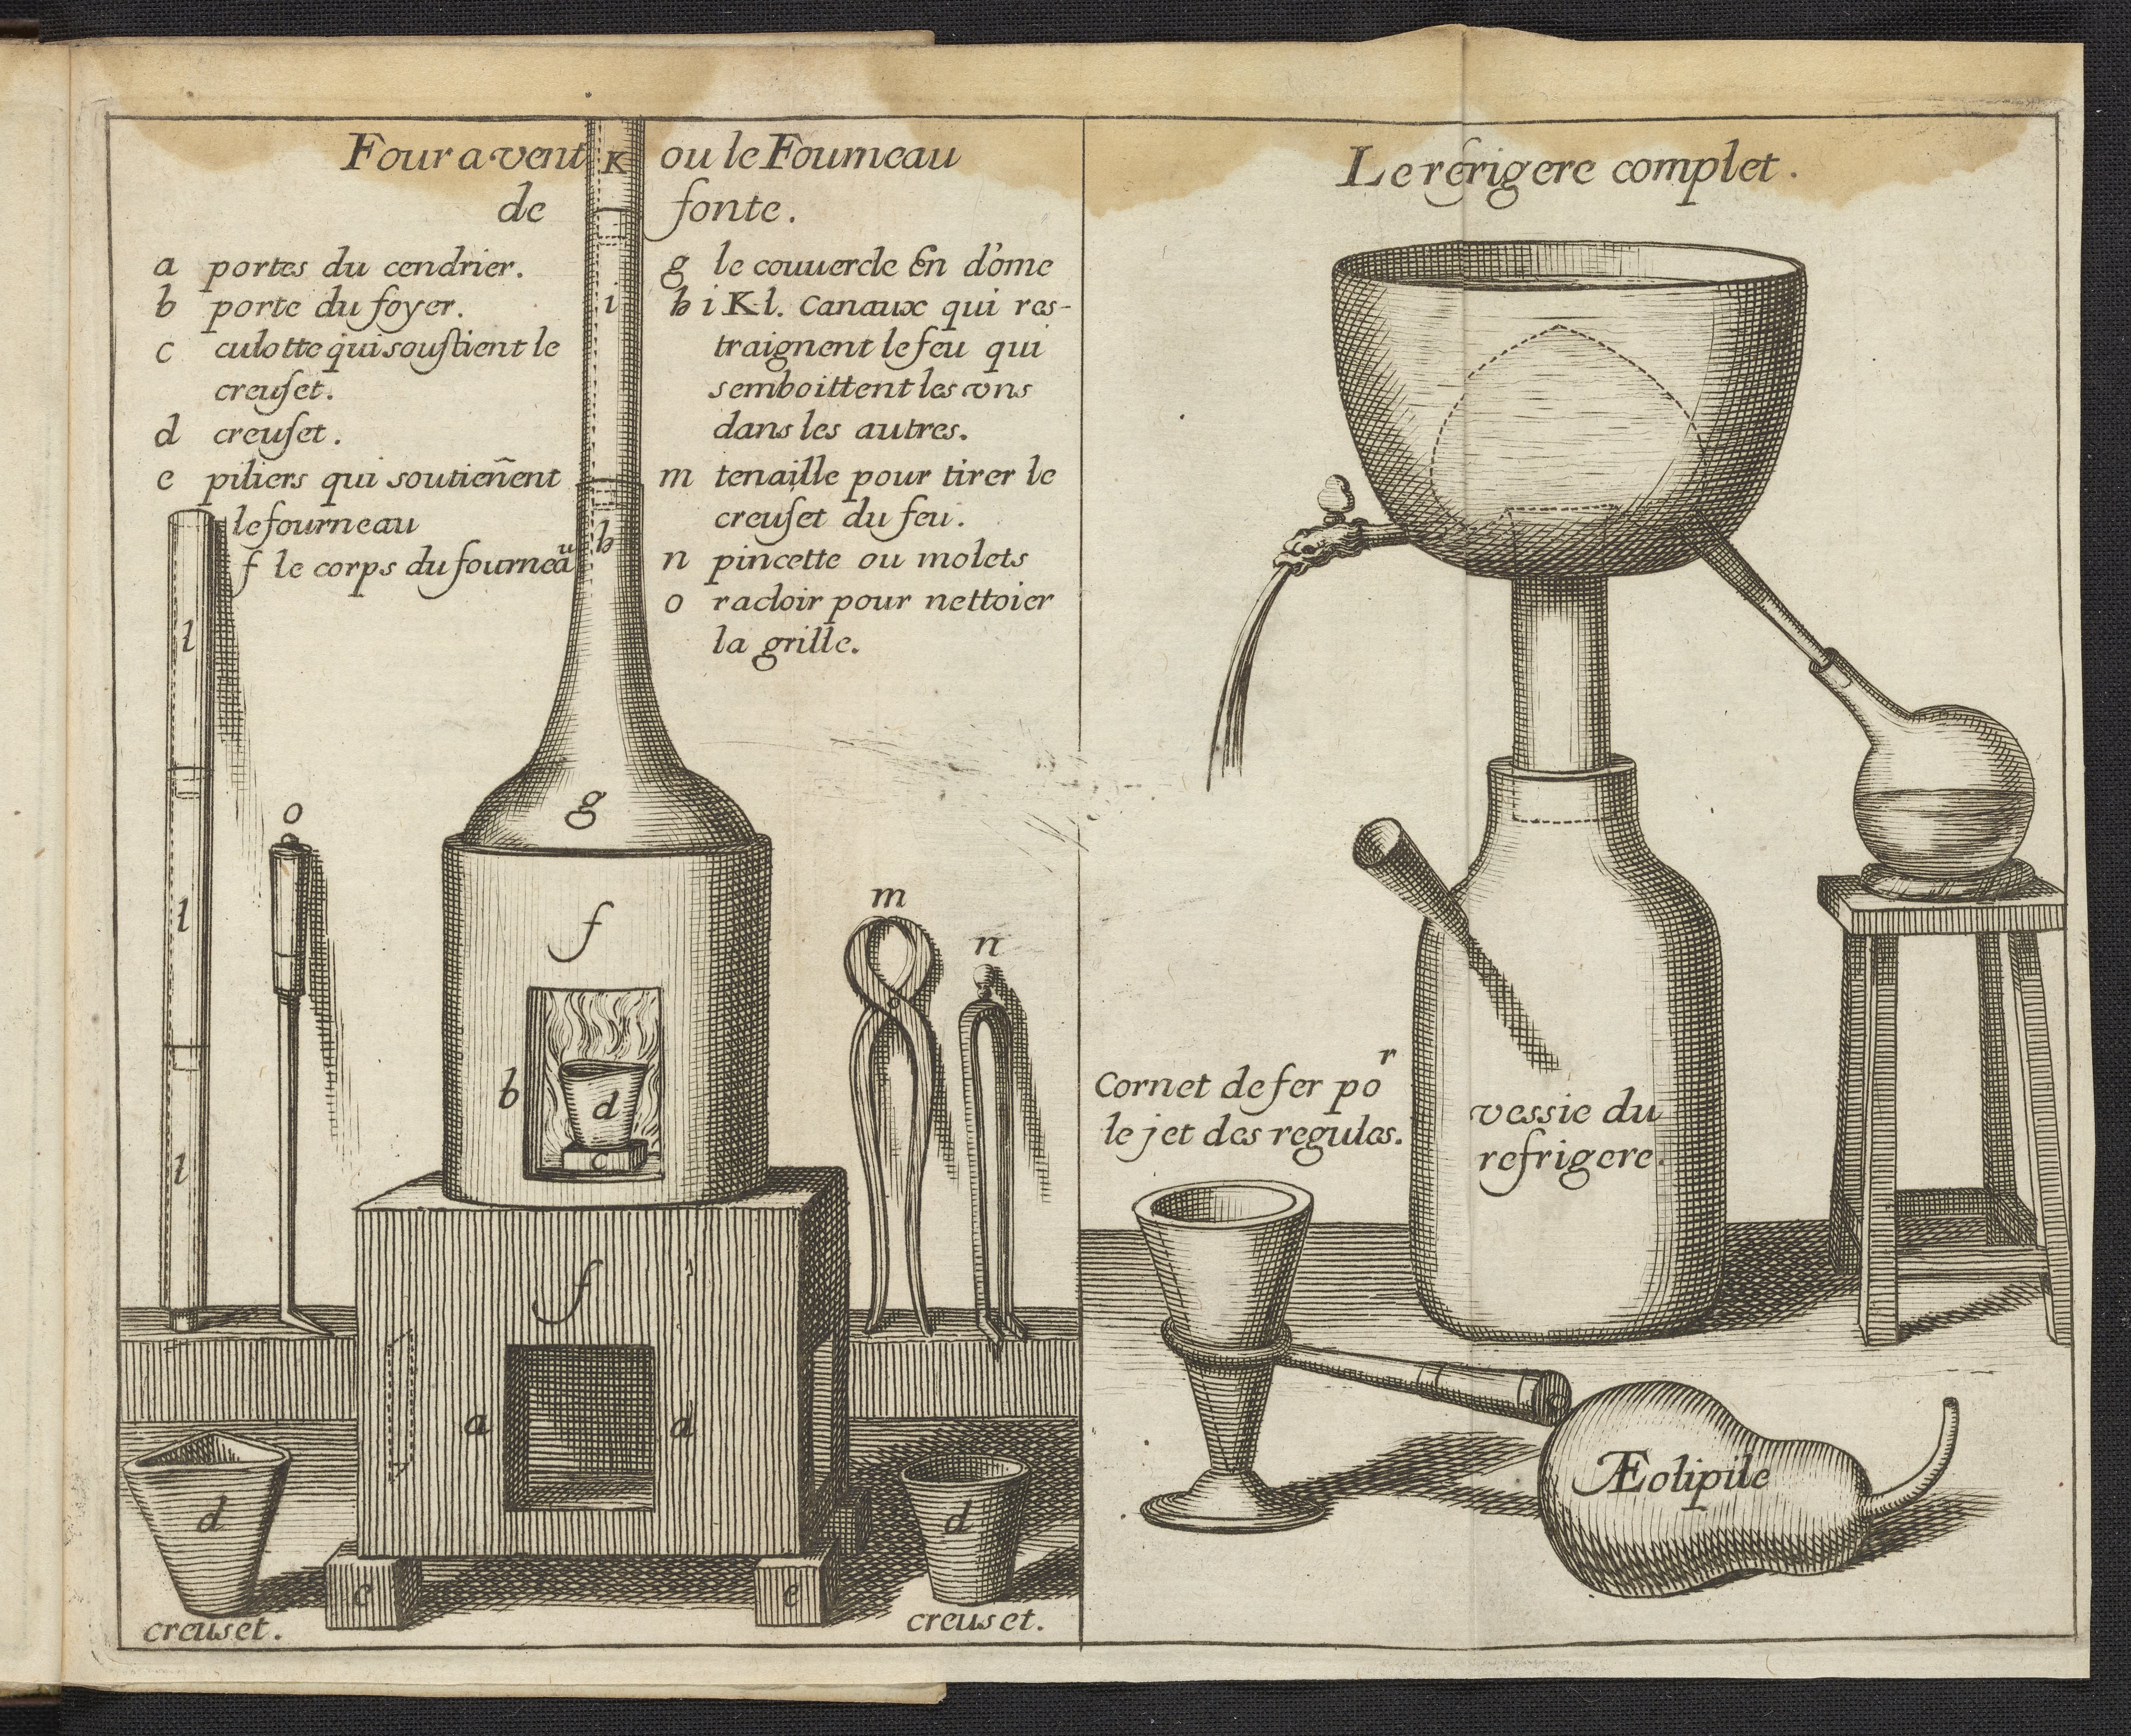 Four a vent K ou le Fourneau
de fonte.
a portes du cendrier.
b porte du foyer.
c culotte qui souſtient le
creuſet.
d creuſet.
e piliers qui soutieñent
le fourneau
f le corps du fourneaᵘ
g le couuercle En dôme
h i K l. Canaux qui res-
traignent le feu qui
semboittent les vns
dans les autres.
m tenaille pour tirer le
creuſet du feu.
n pincette ou molets
o racloir pour nettoier
la grille.
i
h
l
l
l
o
g
f
m
n
b
d
c
f
a
d
d
d
e
e
creuset.
creuset.
Le refrigere complet.
Cornet de fer poʳ
le jet des regules.
vessie du
refrigere.
Æolipile